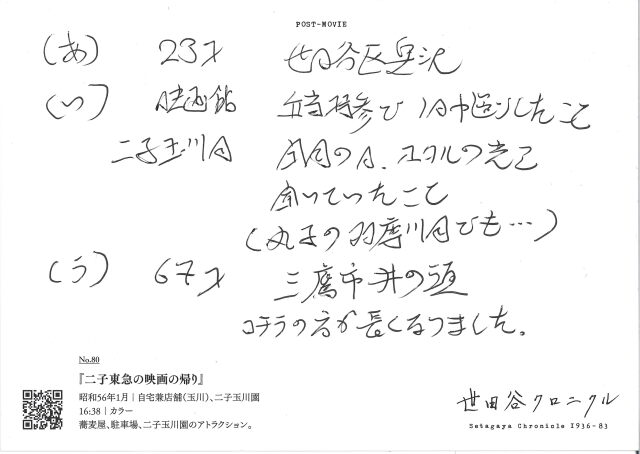 POST-MOVIE
(あ) 23才 世田谷区奥沢
(い) 映画館 弁当持参で1日中過したこと
二子玉川 の 、ホタルの光を
いていったこと
(丸子の多摩川 でも…)
(う) 67才 三鷹市井の頭
コチラの方が長くなりました。
No.80
『二子東急の映画の帰り』
昭和56年1月|自宅兼店舗(玉川)、二子玉川園
16:38|カラー
蕎麦屋、駐車場、二子玉川園のアトラクション。
世田谷クロニクル
Setagaya Chronicle 1936-83